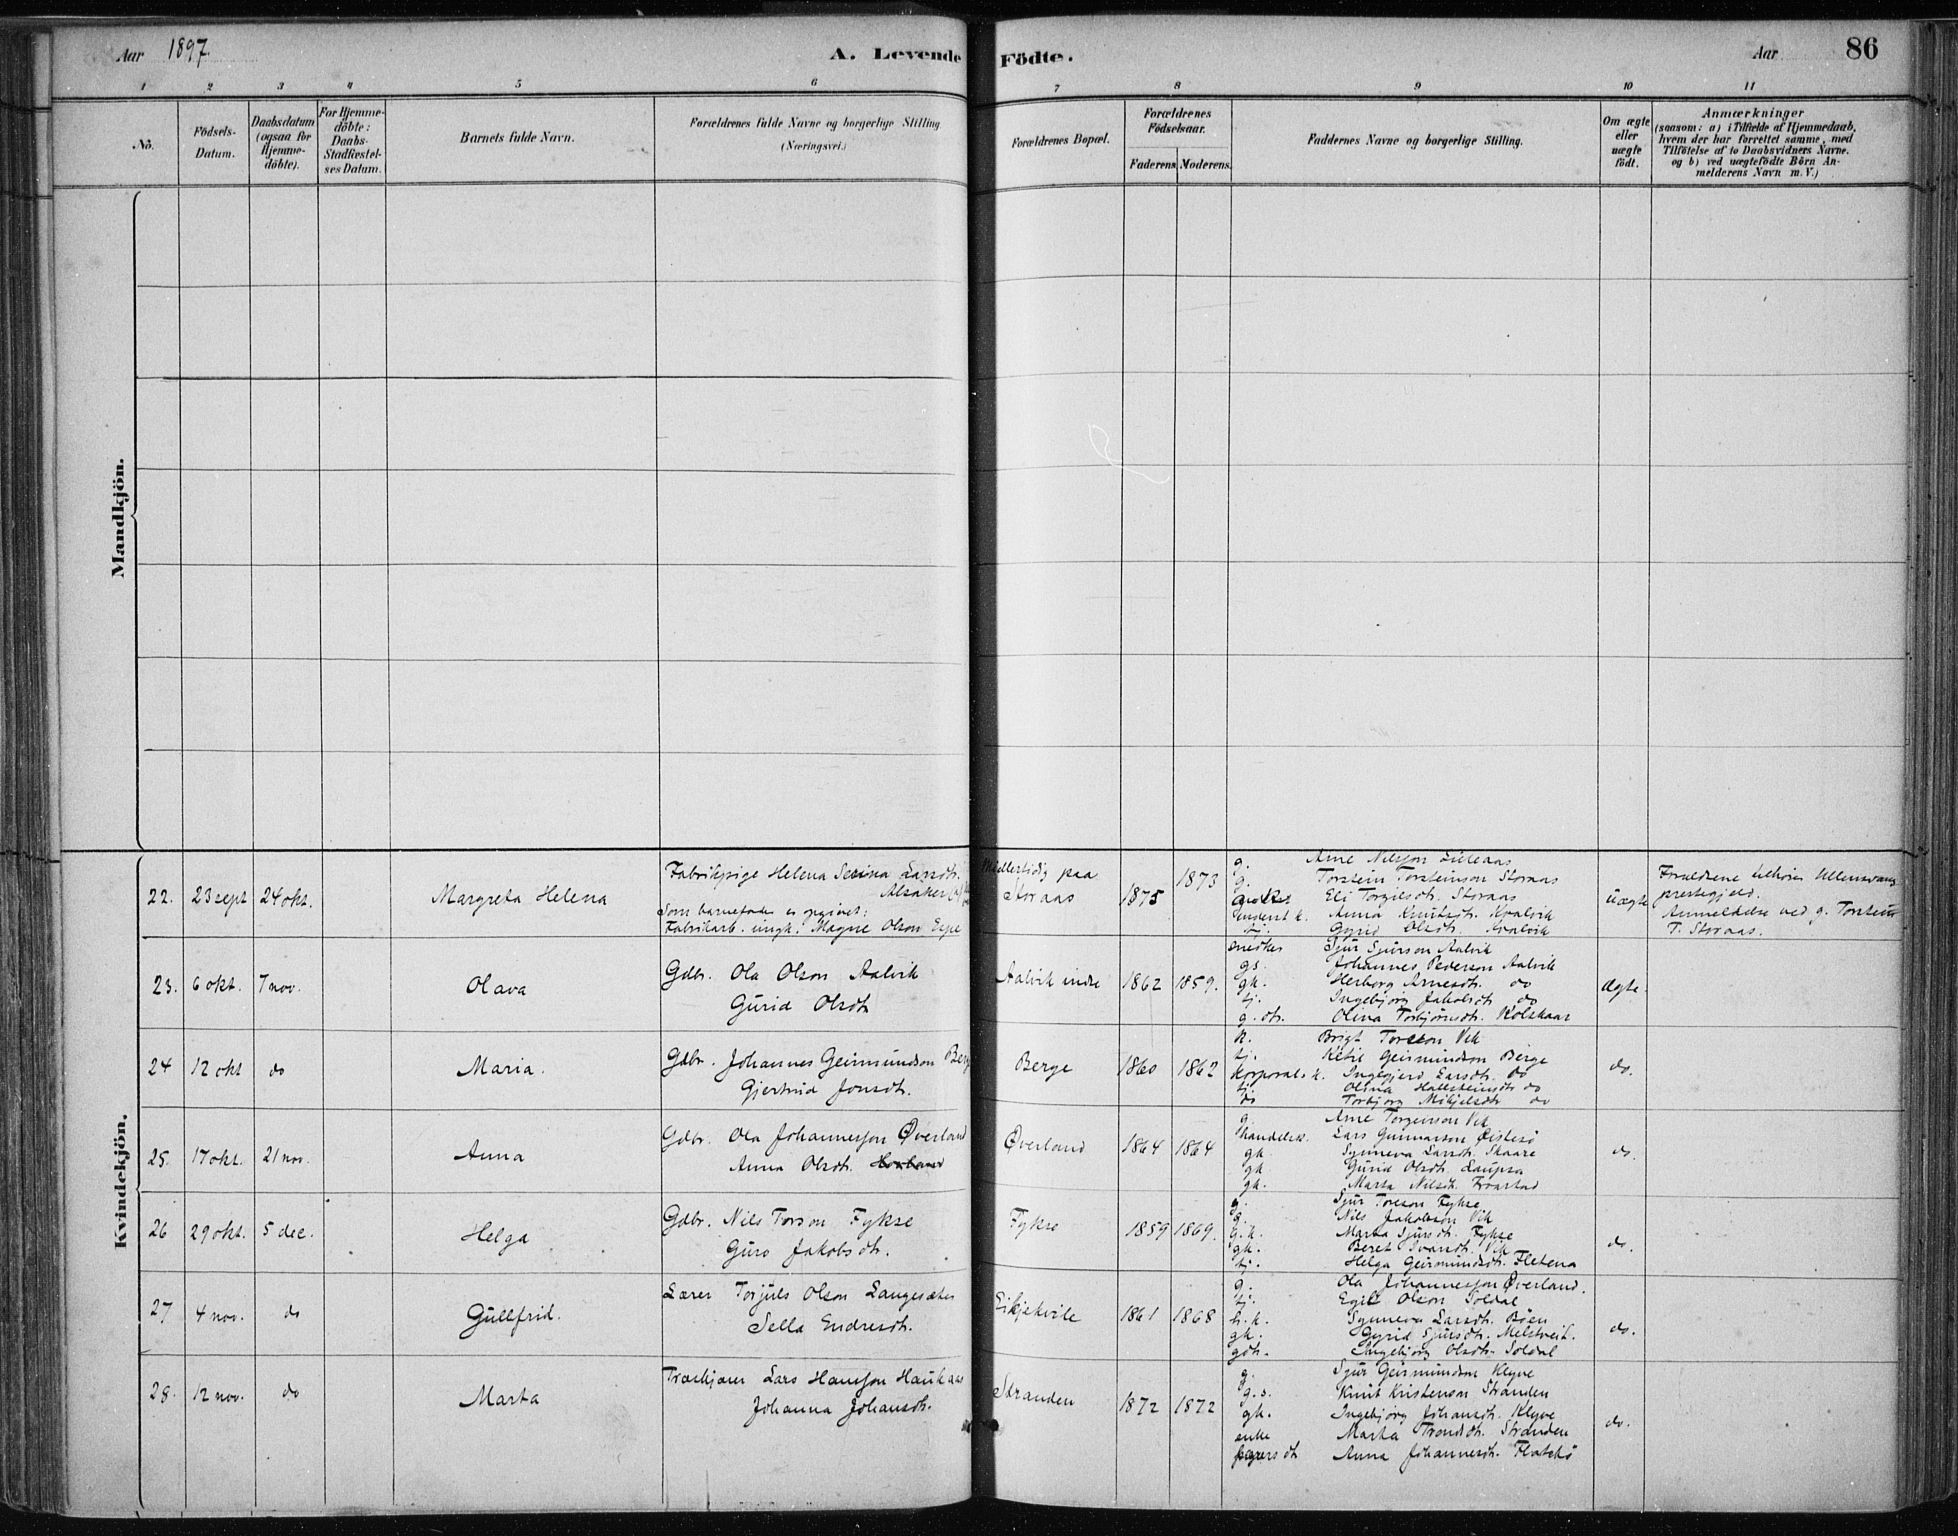 Aar 1897.
A. Levende Födte.
Aar
86
1 2 3 4 5 6 7 8 9 10 11
No.
Födsels-Datum.
Daabsdatum (ogsaa for Hjemmedöbte).
For Hjemmedöbte: Daabs-Stadfestelses Datum.
Barnets fulde Navn.
Forældrenes fulde Navne og borgerlige Stilling (Næringsvei.)
Forældrenes Bopæl.
Forældrenes Födselsaar.
Faderens. Moderens.
Faddernes Navne og borgerlige Stilling.
Om ægte eller uægte födt.
Anmærkninger (saasom: a) i Tilfælde af Hjemmedaab, hvem der har forrettet samme, med Tilföielse af to Daabsvidners Navne. og b) ved uægtefödte Börn Anmelderens Navn m. V.)
Mandkjön.
Kvindekjön.
22. 23 sept 24 okt. Margreta Helena
Fabrikpige Helena Serina Larsdtr.
Alsaker
Som barnefader er opgivet:
Fabrikarb. ungk. Magne Olson Espe
Midlertidig paa
Storaas
1875 1873
g. Arne Nilsson Lilleaas
g. Torstein Torsteinson Storaas
Eli Torgilsdtr. Storaas
Anna Knutsdtr. Kvalvik
tj. Gyrid Olsdtr. Kvalvik
uægte
Forældrene tilhører Ullensvang
prestegjeld.
Anmeldelse ved g. Torstein
T. Storaas.
23. 6 okt. 7 nov. Olava
Gdbr. Ola Olson Aalvik
Gurid Olsdtr
Aalvik indre 1862 1859.
snedker Sjur Sjurson Aalvik
gs. Johannes Pederson Aalvik
gk. Herborg Arnesdtr. do
tj. Ingebjørg Jakobsdtr do
g. dtr. Olina Torbjørnsdtr. Kolskaar
ægte.
24 12 okt do Maria.
Gdbr. Johannes Geirmundson Berge
Gjertrud Jonsdtr.
Berge 1860 1862
k. Brigt Torsson Vik
tj. Ketil Geirmundson Berge
Korporals k. Ingegjerd Larsdtr. do
tj. Olina Hallsteinsdtr do
do Torbjørg Mikjelsdtr do
do.
25. 17 okt. 21 nov. Anna
Gdbr. Ola Johannesson Øverland
Anna Olsdtr.
Øverland 1864 1864
g. Arne Torgeirson Vik
handelsk. Lars Gunnarson Øistesø
gk. Synneva Larsdtr. Skaare
gk Gurid Olsdtr. Laupsa
gk. Marta Nilsdtr. Tvartad
do.
26 29 okt. 5 dec. Helga
Gdbr. Nils Torson Fykse
Guro Jakobsdtr.
Fykse 1859 1869.
g. Sjur Torsson Fykse
g. Nils Jakobson Vik
g.k. Marta Sjursdtr. Fykse
gk. Beret Ivarsdtr. Vik
tj. Helga Geirmundsdtr. Fletena
do.
27 4 nov. do Gullfrid.
Lærer Torjuls Olson Langesæter
Sella Endresdtr.
Eikjekvile 1861 1868
g. Ola Johannesson Øverland.
tj. Egil Olson Soldal
h.k. Synneva Larsdtr. Bøen
gk. Gyrid Sjursdtr. Melstveit.
gdtr. Ingebjørg Olsdtr. Soldal
do.
28. 12 nov. do Marta
Træskjærer Lars Hansson Haukaas
Johanna Johansdtr.
Stranden 1872 1872
g. Sjur Geirmundson Klyve
g.s. Knut Kristenson Stranden
gk. Ingebjørg Johansdtr. Klyve
enke Marta Trondsdtr. Stranden
Anna Johannesdtr. Flatebø
do.